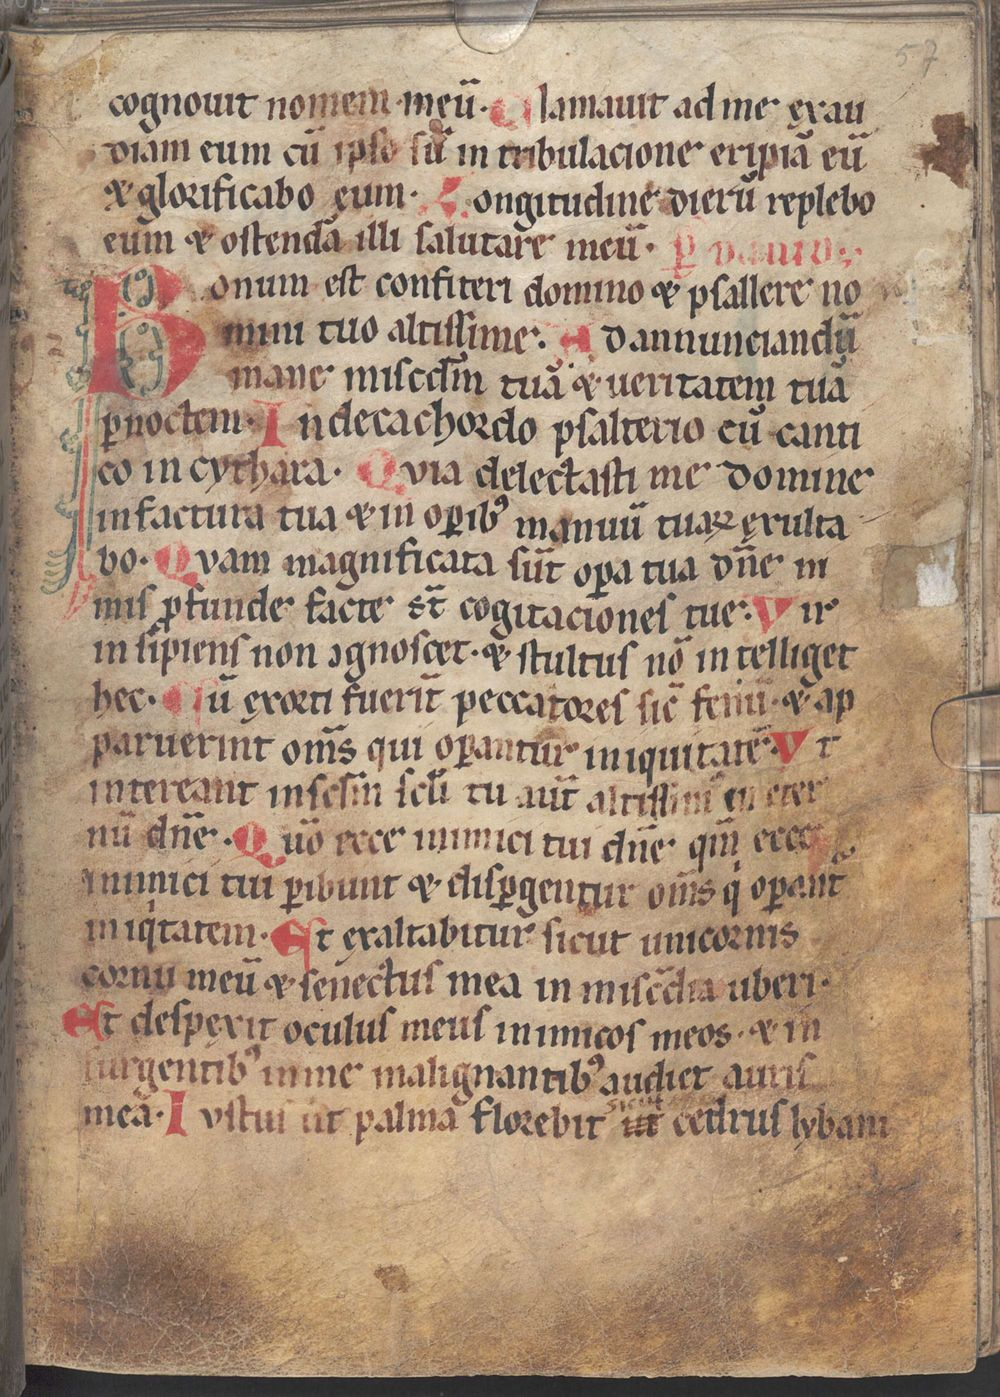 57
cognouit nomen meū. Clamauit ad me exau
diam eum cū ipso sū in tribulacione eripiā eū
& glorificabo eum. Longitudine dierū replebo
eum & ostendā illi salutare meū.
Bonum est confiteri domino & psallere no
mini tuo altissime. Ad annunciandū
mane miscdīm tuā & ueritatem tuā
p̄ noctem. In decachordo psalterio cū canti
co in cythara. Qvia delectasti me domine
in factura tua & in op̄ibꝰ manuū tuaꝝ exulta
bo. Qvam magnificata sūt op̄a tua dn̄e ni
mis ꝓfunde facte st̄ cogitaciones tue. Vir
insipiens non ꝯgnoscet. & stultus nō intelliget
hec. Cū exorti fuerīt peccatores sic̄ fenū. & ap
paruerint om̄s qui op̄antur iniquitatē. Vt
intereant in sclm̄ scl̄i tu aūt altissimꝰ in eter
nū dn̄e. Quō ecce inimici tui dn̄e qm̄ ecce
inimici tui p̄ibunt & disp̄gentur om̄s q̇ op̄ant
iniq̇tatem. Et exaltabitur sicut unicornis
cornu meū & senectus mea in misc̄dia uberi.
Et despexit oculus meus inimicos meos. & in
surgentibꝰ in me malignantibꝰ audiet auris
mea. Ivstus ut palma florebit ut sicut cedrus lybani